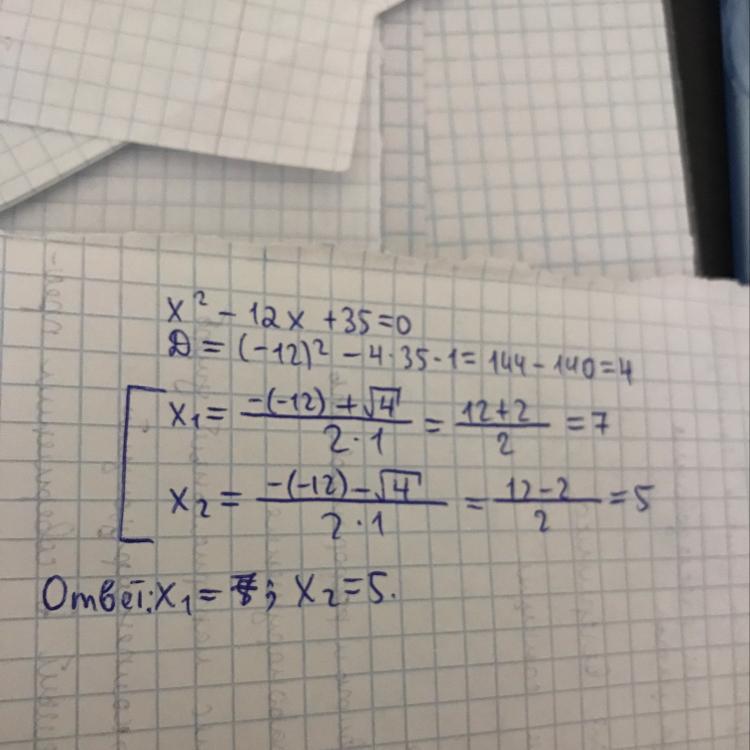 x² - 12x + 35 = 0
D = (-12)² - 4·35·1 = 144 - 140 = 4
x₁ = (-(-12) + √4)/(2·1) = (12+2)/2 = 7
x₂ = (-(-12) - √4)/(2·1) = (12-2)/2 = 5
Ответ: x₁ = 7; x₂ = 5.